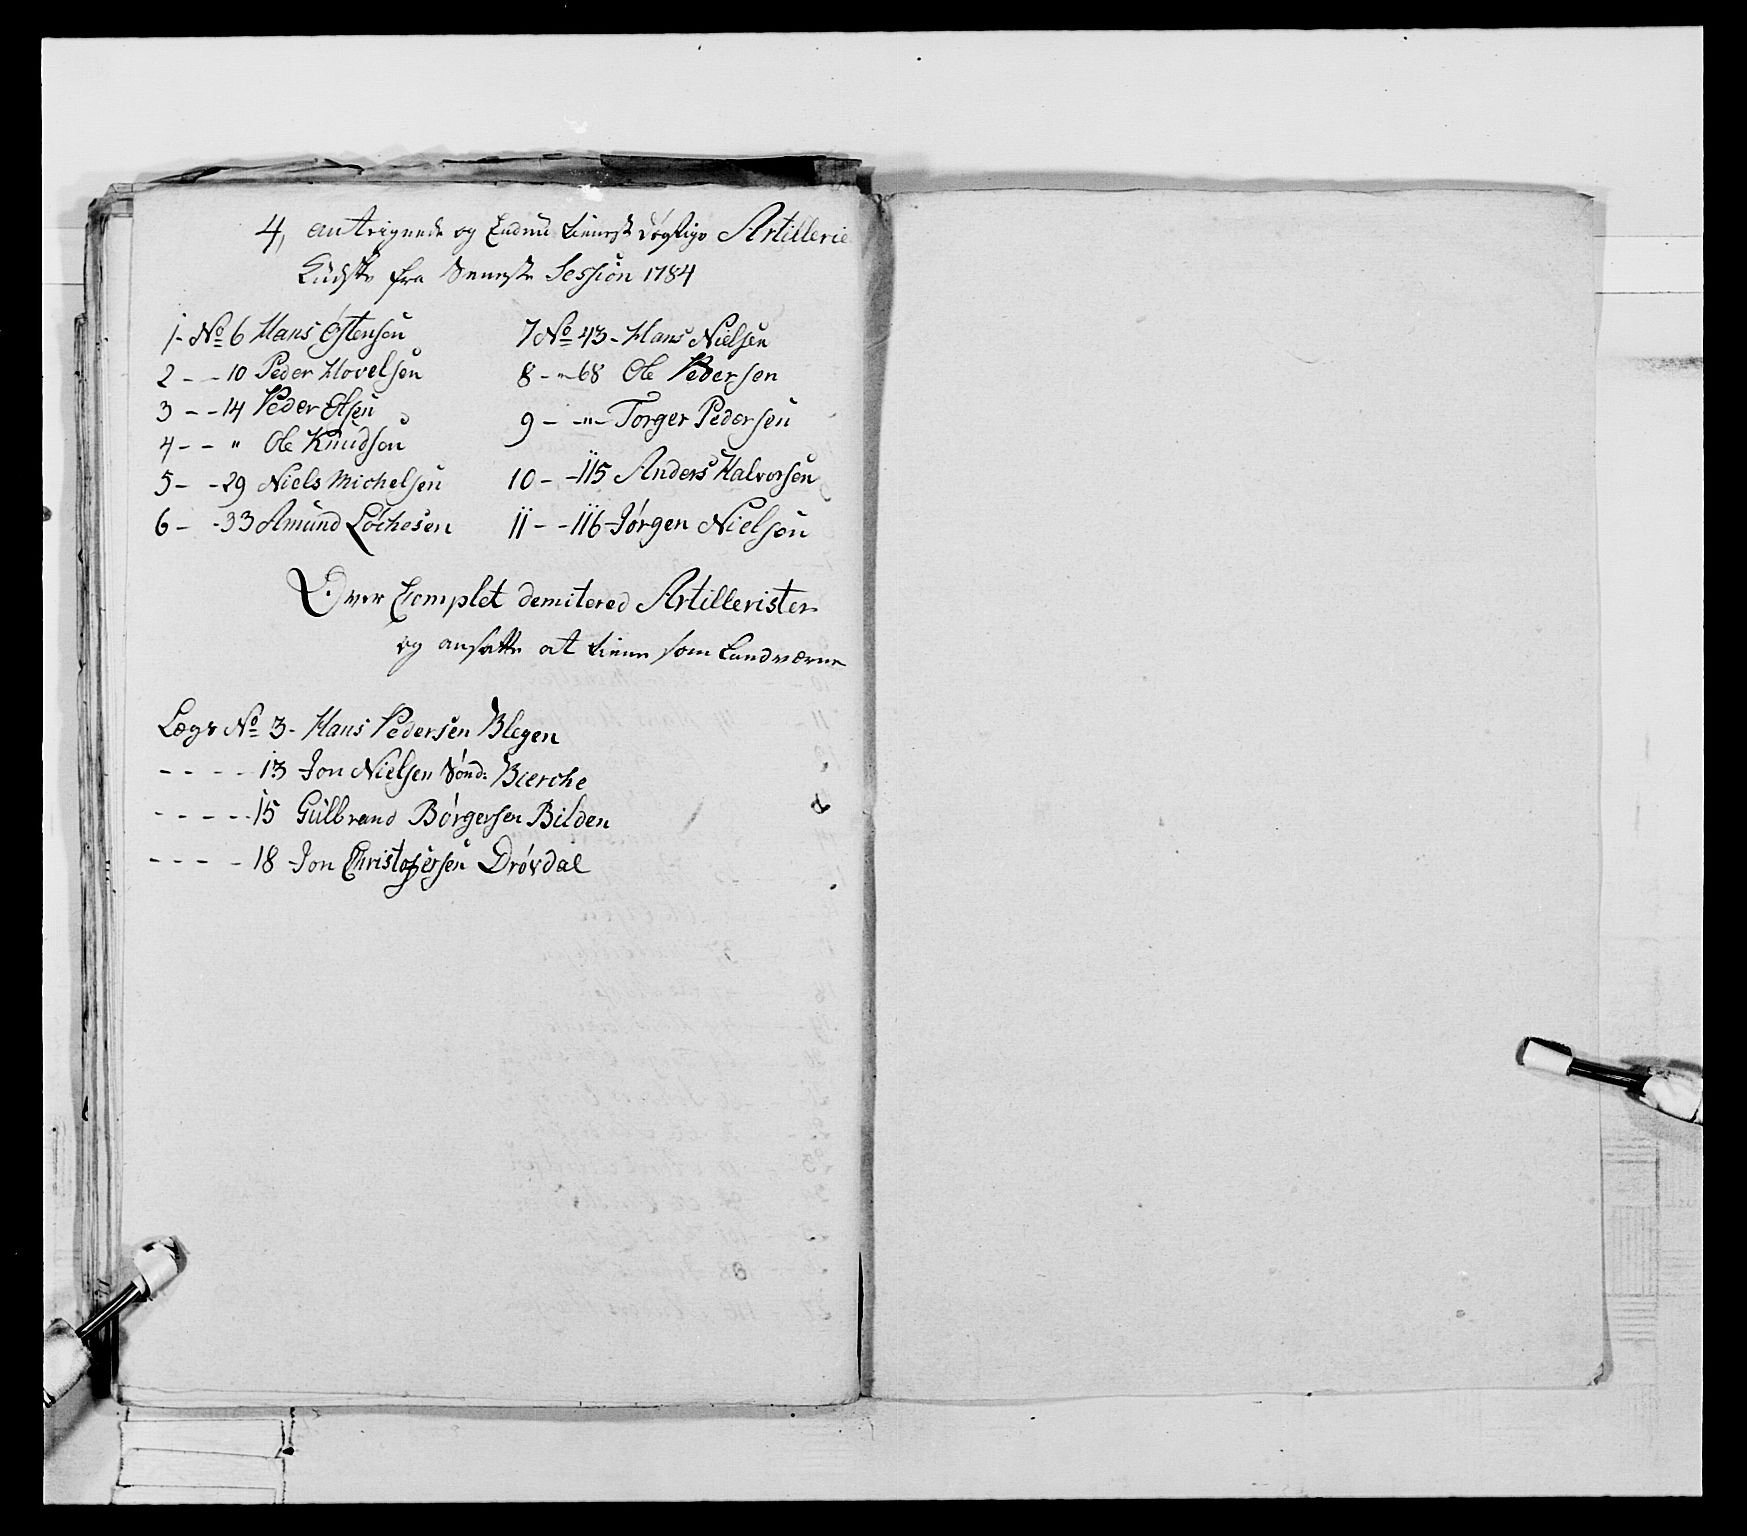 4, antegnede og Endnu tienest døgtige Artillerie
Ludske fra Seneste Session 1784
1 - No 6 Hans Østensen
2 - - 10 Peder Hovelsen
3 - - 14 Peder Olsen
4 - - " Ole Knudsen
5 - - 29 Niels Michelsen
6 - - 33 Amund Lochesen
7 No 43 - Hans Nielsen
8 - " 68 Ole Pedersen
9 - - " - Torger Pedersen
10 - - 115 Anders Halvorsen
11 - - 116 Jørgen Nielsen
Over Complet demitered Artillerister
og ansatte at tiene som Landværne
Lægs No 3 - Hans Pedersen Blegen
- - - - 13 Jon Nielsen Sønd: Bierche
- - - - - 15 Gulbrand Børgersen Bilden
- - - - 18 Jon Christophersen Drøvdal